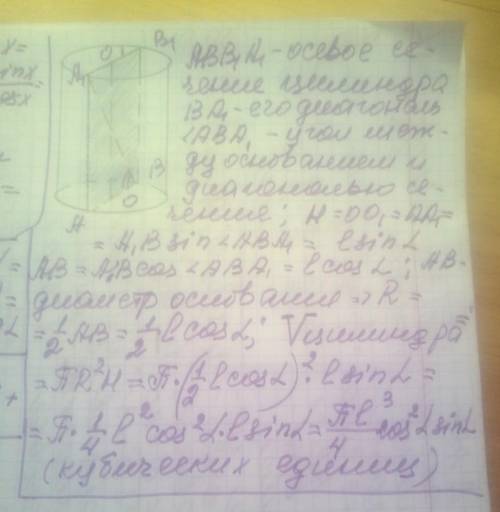 x=
sinx
cosx
O1 B1
A1
B
O
A
ABB1A1 - осевое се-
чение цилиндра
BA1 - его диагональ
<ABA1 - угол меж-
ду основанием и
диагональю се-
чения; H=OO1=AA1=
=A1B sin<ABA1 = l sinα
AB=A1B cos<ABA1 = l cosα; AB-
диаметр основание => R=
=1/2 AB = 1/2 l cosα; Vцилиндра =
=ПR²H = П·(1/2 l cosα)²·l sinα =
=П·1/4 l² cos²α·l sinα = Пl³/4 cos²α sinα
(кубических единиц)